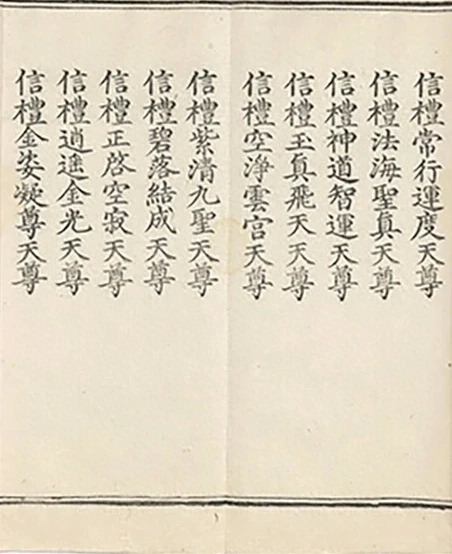 信禮常行運度天尊
信禮法海聖真天尊
信禮神道智運天尊
信禮玉真飛天天尊
信禮空淨雲宮天尊
信禮紫清九聖天尊
信禮碧落結成天尊
信禮正啓空寂天尊
信禮逍遙金光天尊
信禮金姿凝尊天尊